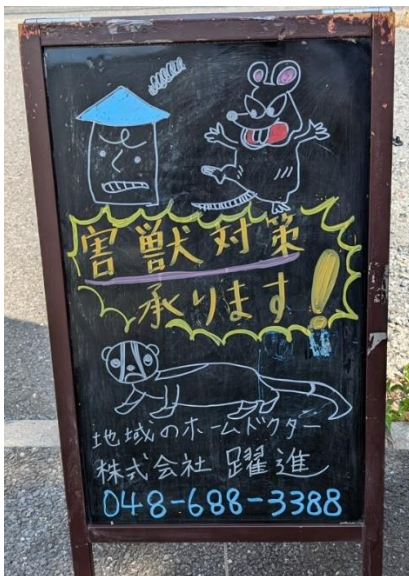 害獣対策
承ります!
地域のホームドクター
株式会社 躍進
048-688-3388